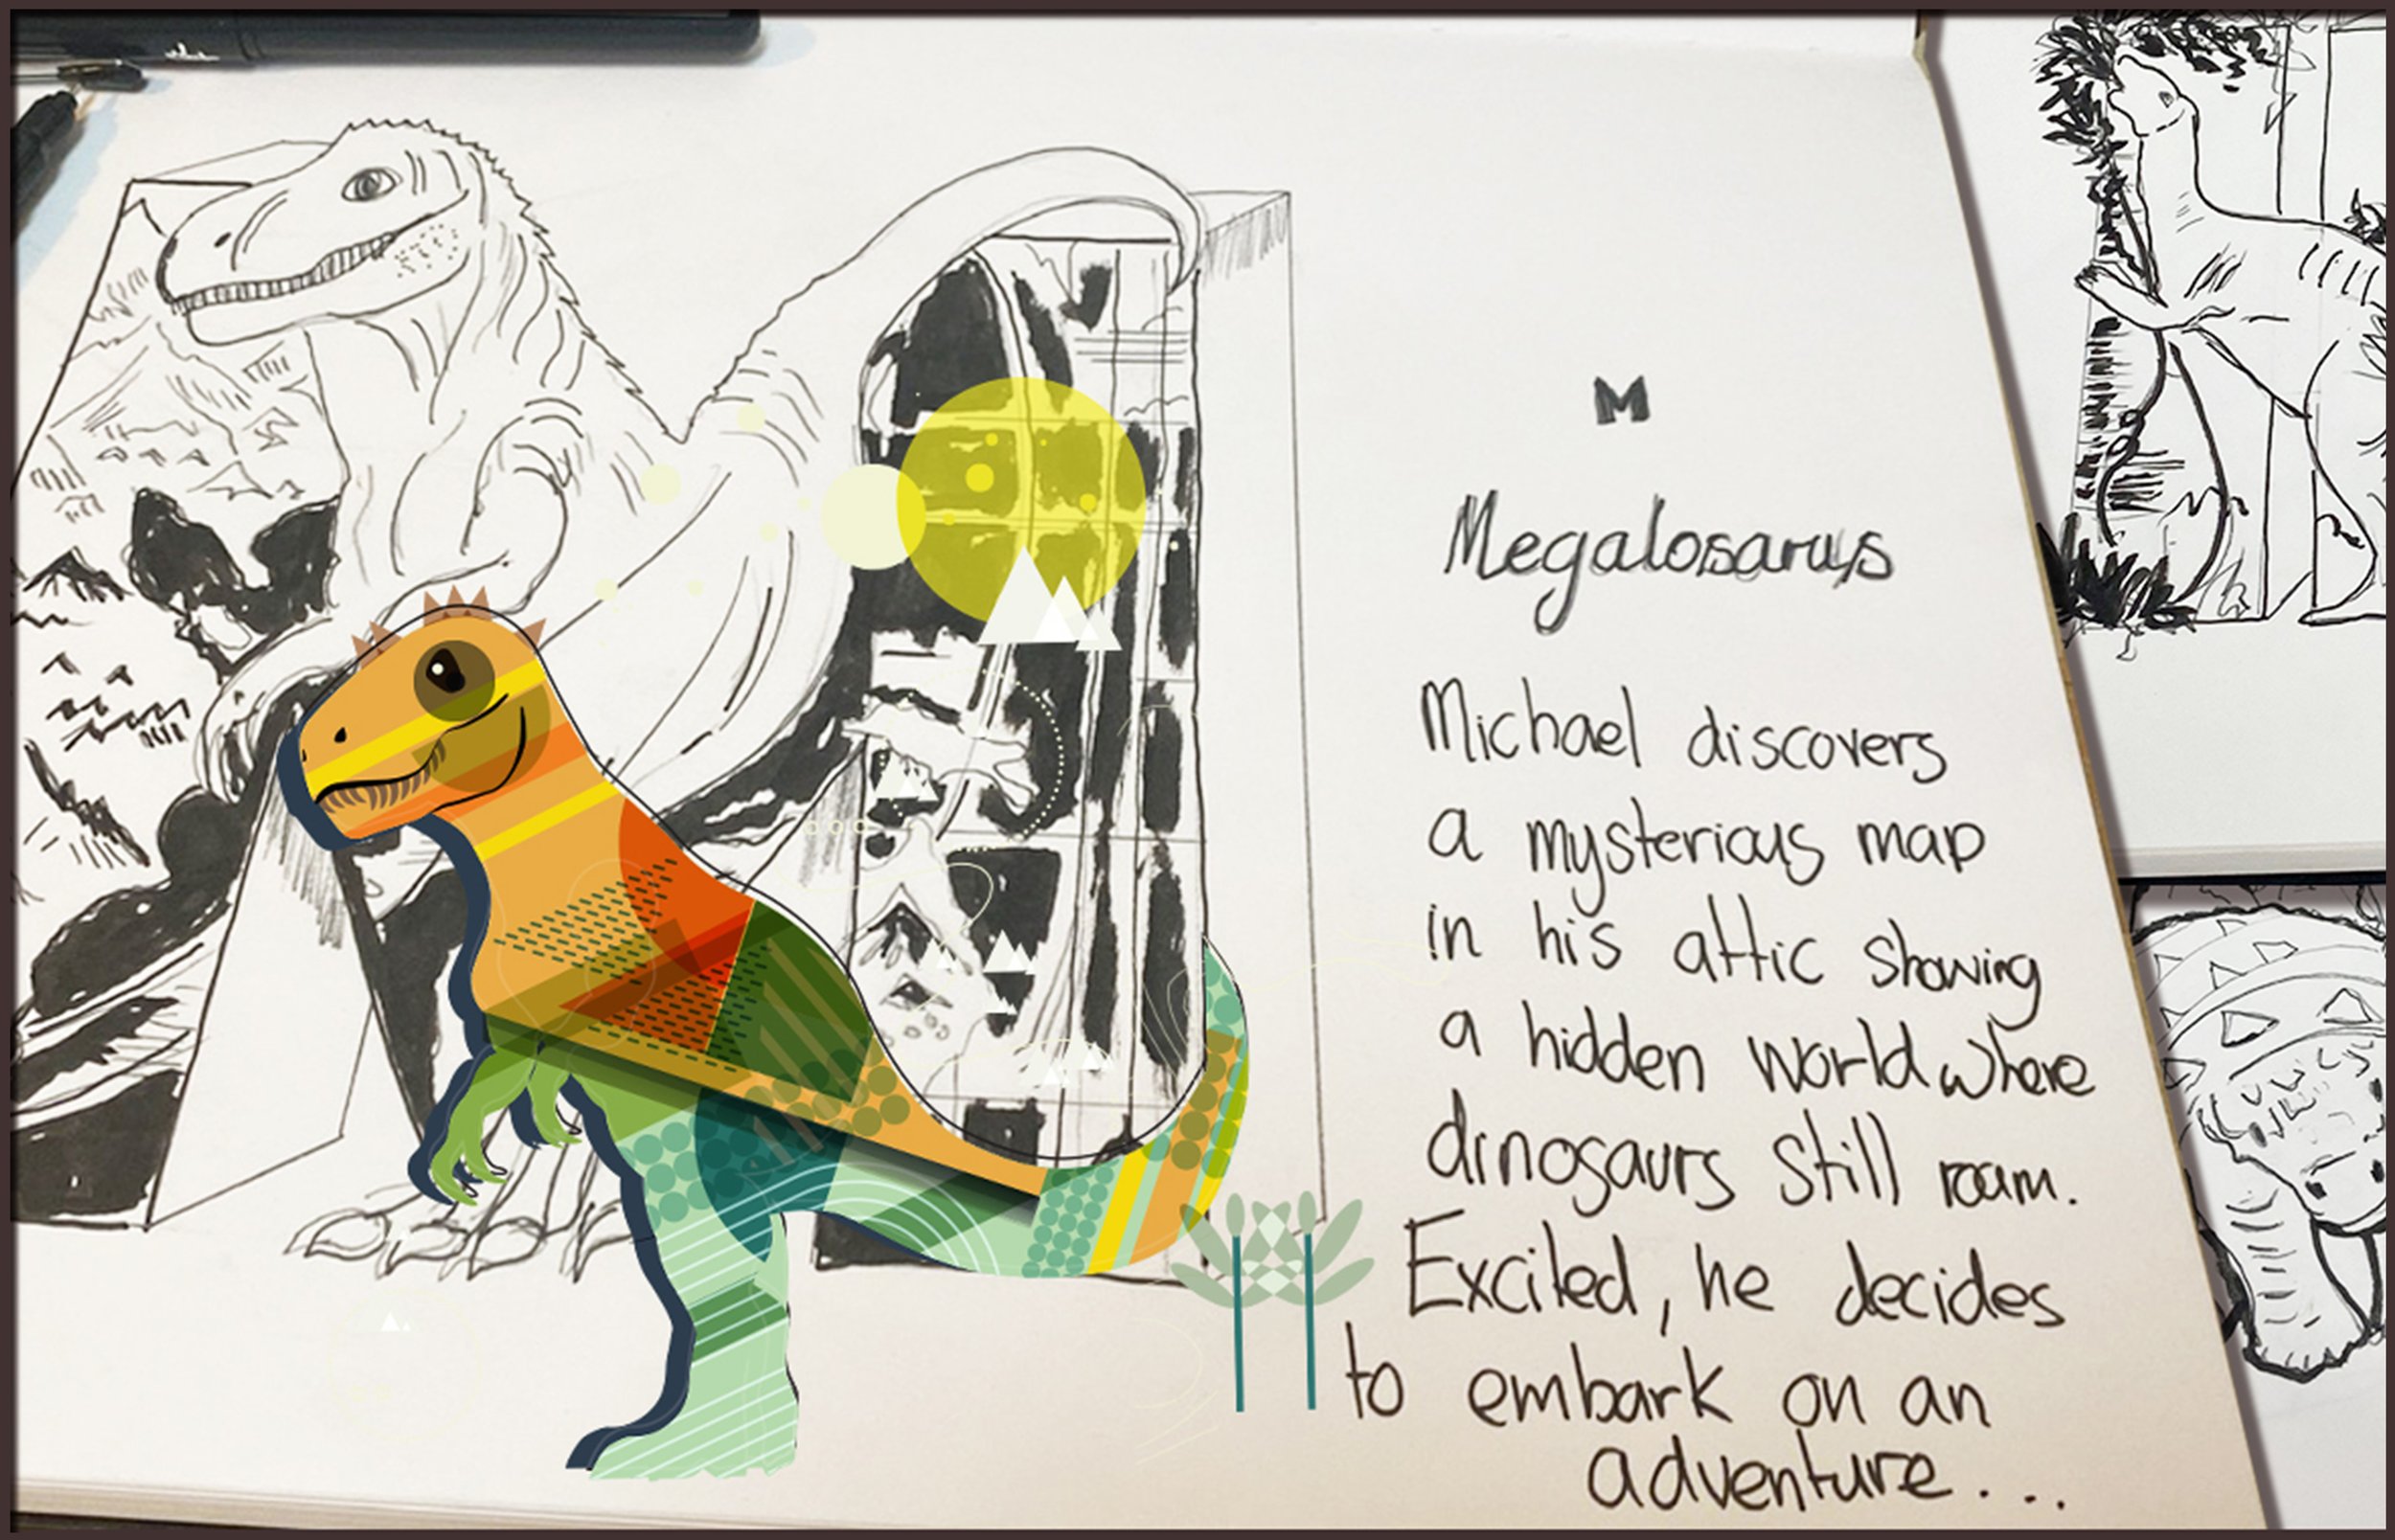 M
Megalosarus
Michael discovers
a mysterious map
in his attic showing
a hidden world where
dinosaurs still roam.
Excited, he decides
to embark on an
adventure...